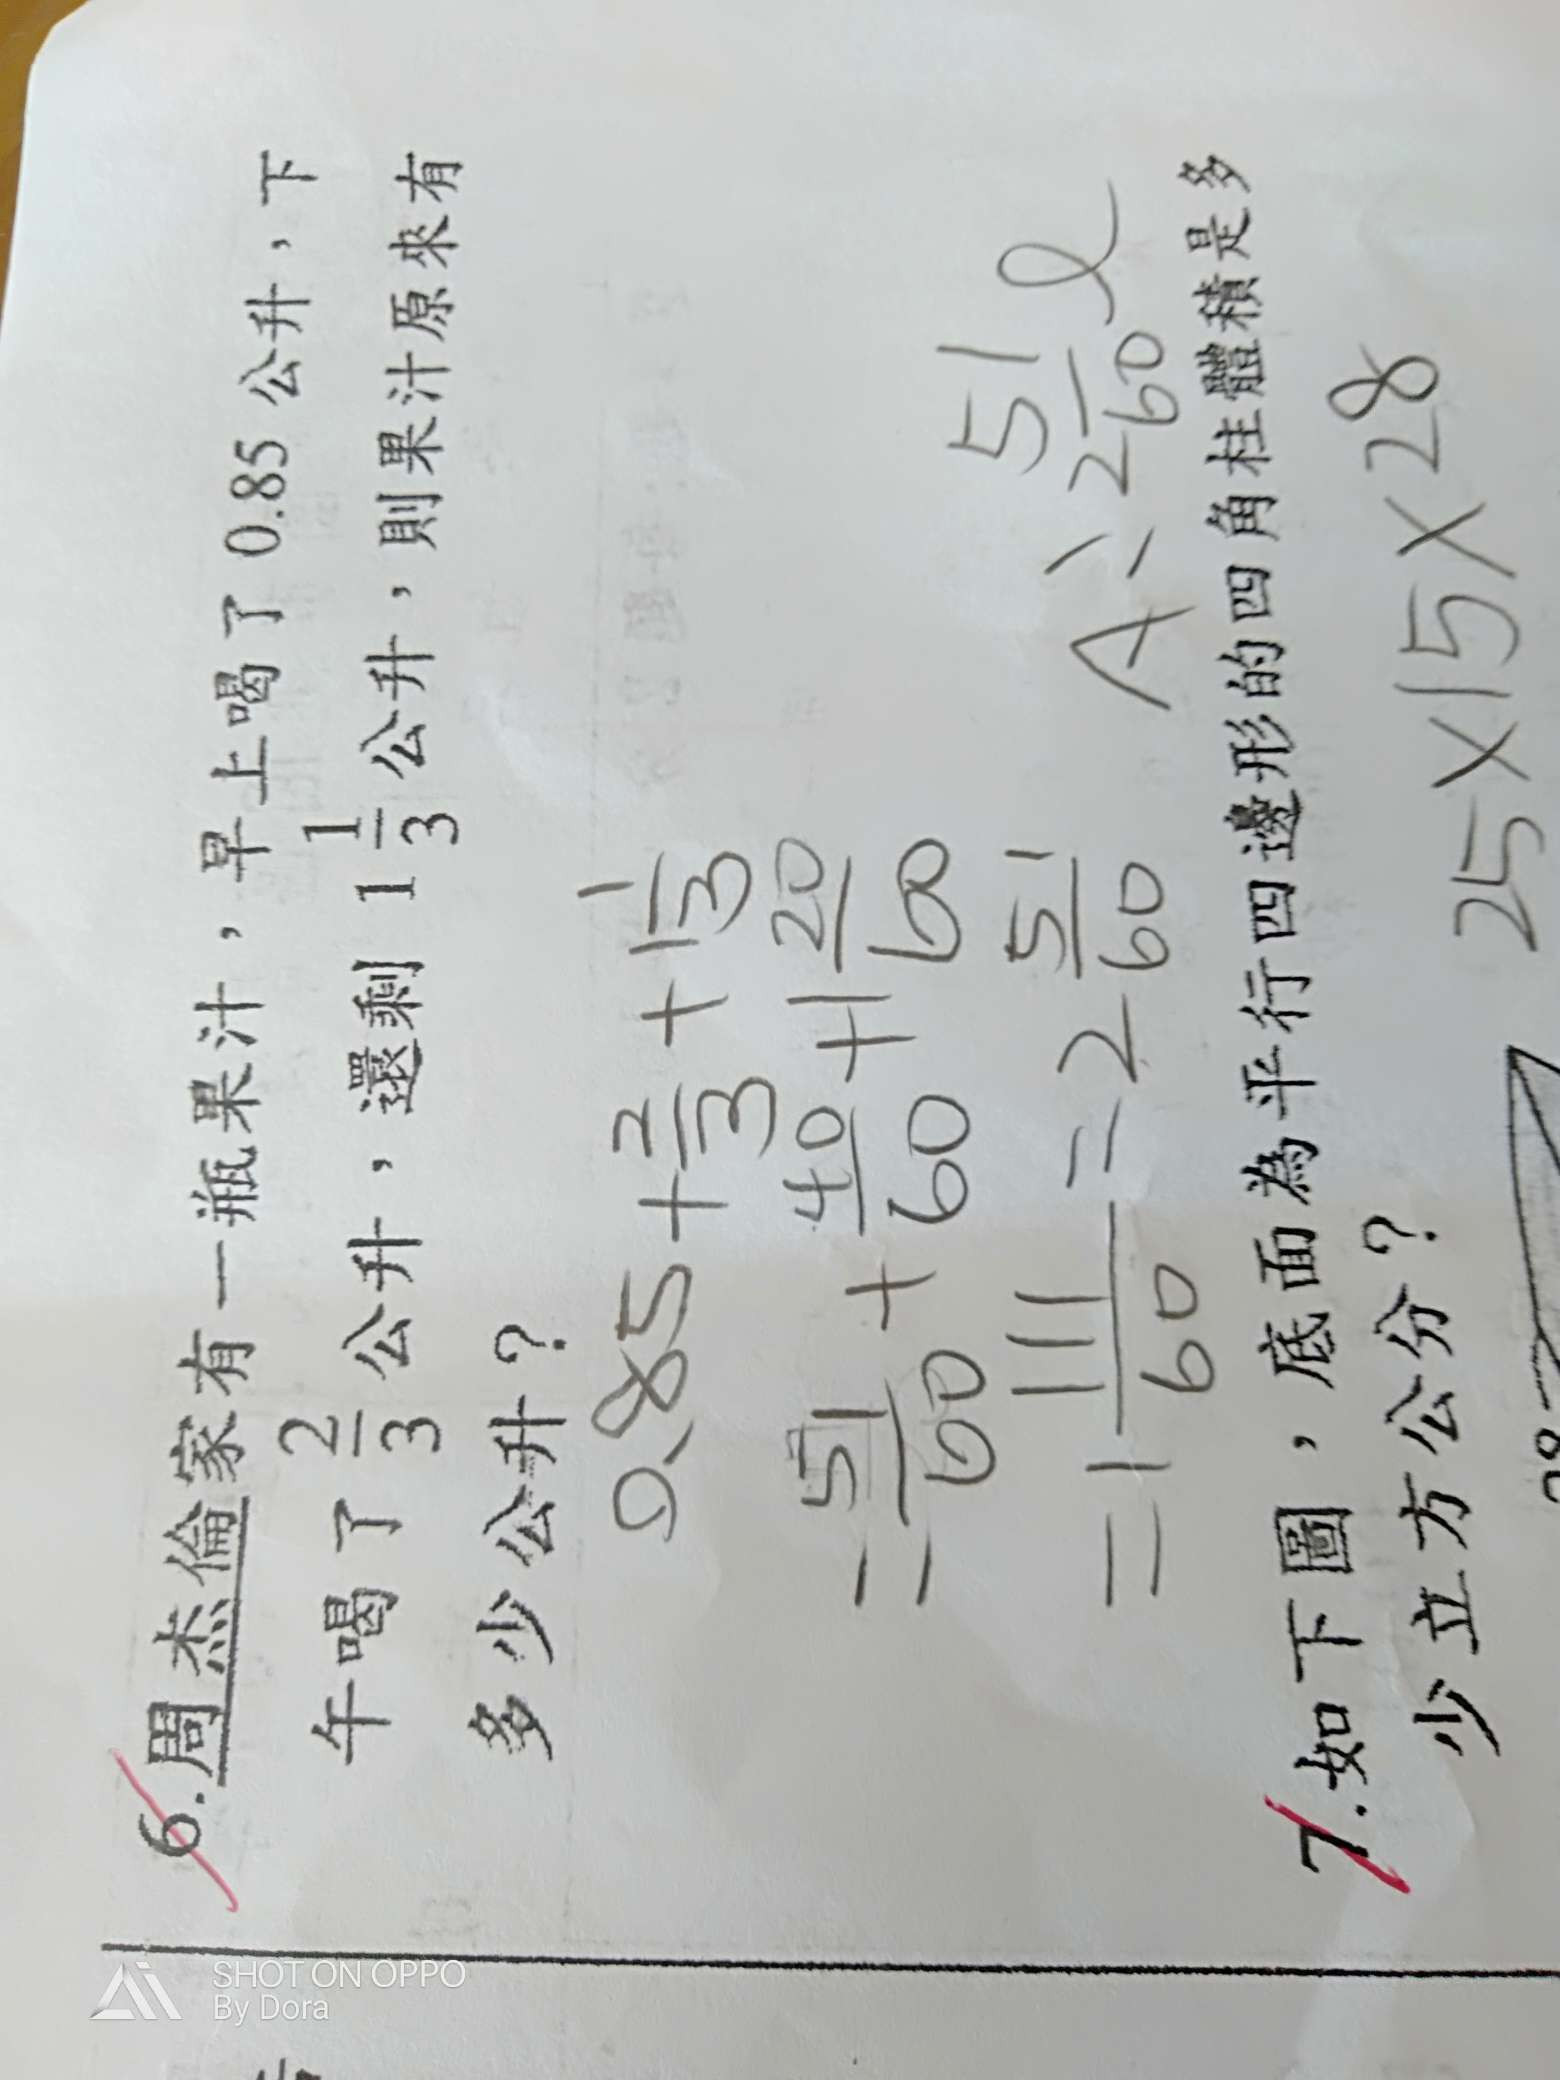 6.周杰倫家有一瓶果汁，早上喝了 0.85 公升，下
午喝了 2/3 公升，還剩 1 1/3 公升，則果汁原來有
多少公升？
0.85+2/3+1 1/3
=51/60+40/60+1 20/60
=1 111/60=2 51/60
A:2 51/60 ℓ
7.如下圖，底面為平行四邊形的四角柱體積是多
少立方公分？
25×15×28
SHOT ON OPPO
By Dora